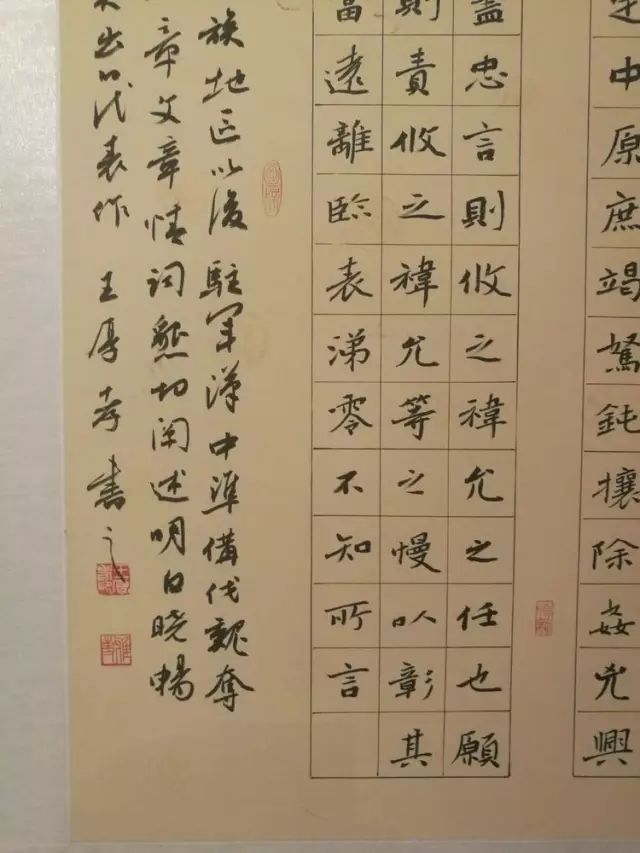 定中原庶竭駑鈍攘除姦兇興
盡忠言則攸之禕允之任也願
則責攸之禕允等之慢以彰其
當遠離臨表涕零不知所言
族地区以後駐軍漢中準備伐魏奪
章文章情词懇切阐述明白晓暢
出的代表作 王厚孝書之